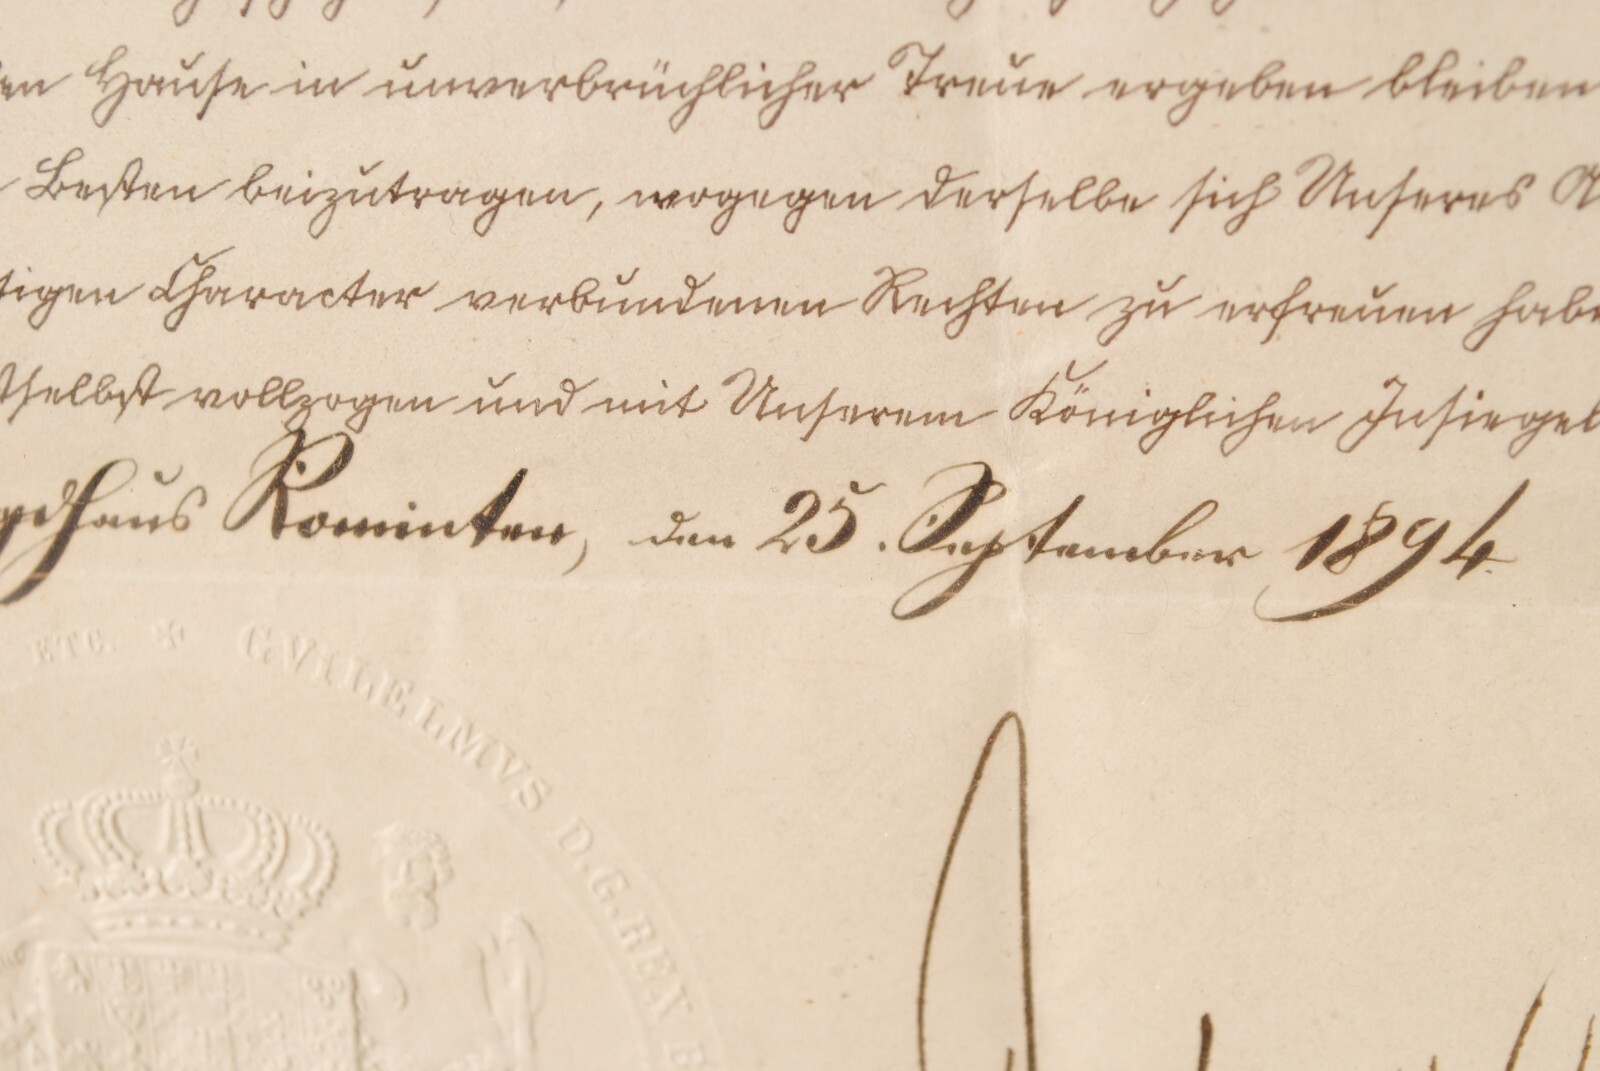 en Hause in unverbrüchlicher Treue ergeben bleiben
Besten beizutragen, wogegen derselbe sich Unseres A
tigen Character verbundenen Rechten zu erfreuen habe
tselbst vollzogen und mit Unserem Königlichen Insiegel
gdhaus Rominten, den 25. September 1894.
ETC. ✠ GVILELMVS D.G. REX B